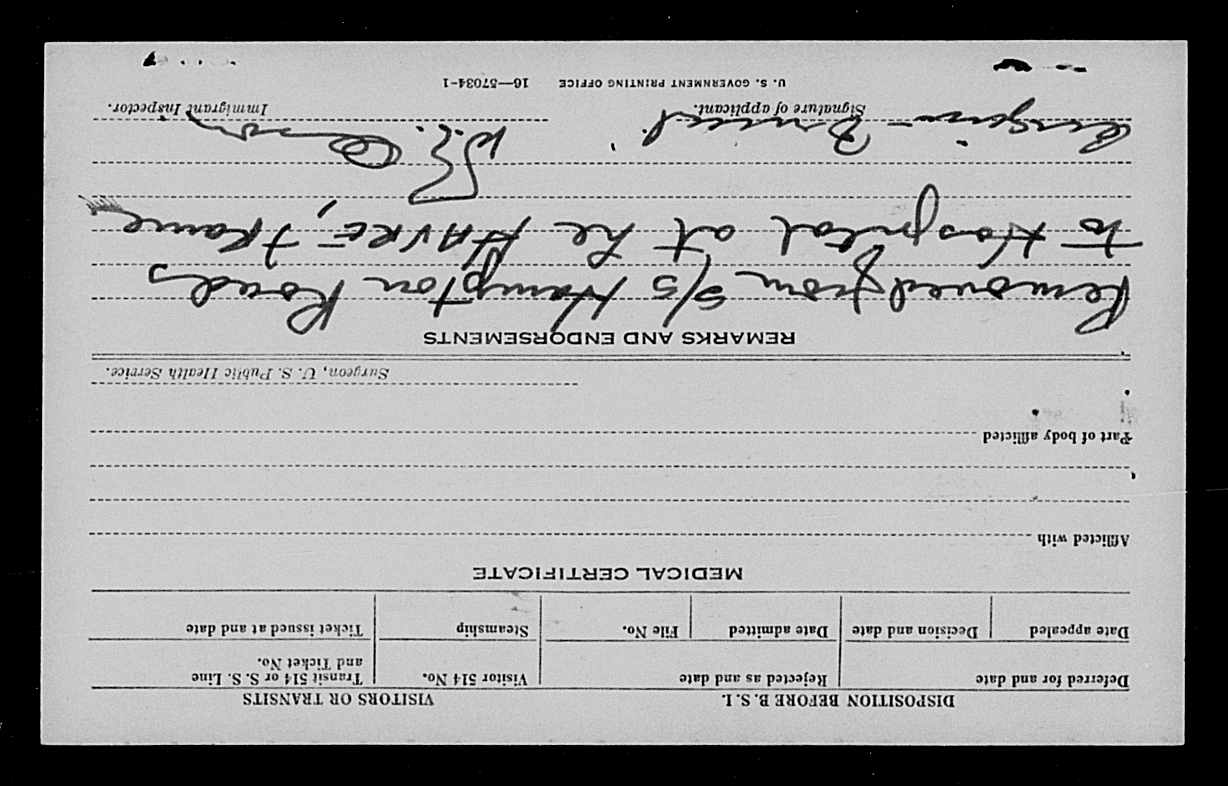 DISPOSITION BEFORE B. S. I.
VISITORS OR TRANSITS
Deferred for and date
Rejected as and date
Visitor 514 No.
Transit 514 or S. S. Line and Ticket No.
Date appealed
Decision and date
Date admitted
File No.
Steamship
Ticket issued at and date
MEDICAL CERTIFICATE
Afflicted with
Part of body afflicted
Surgeon, U. S. Public Health Service.
REMARKS AND ENDORSEMENTS
Removed from S/S Hampton Roads
to Hospital at Le HAVRE, France
Signature of applicant.
Immigrant Inspector.
U. S. GOVERNMENT PRINTING OFFICE 16—57034-1